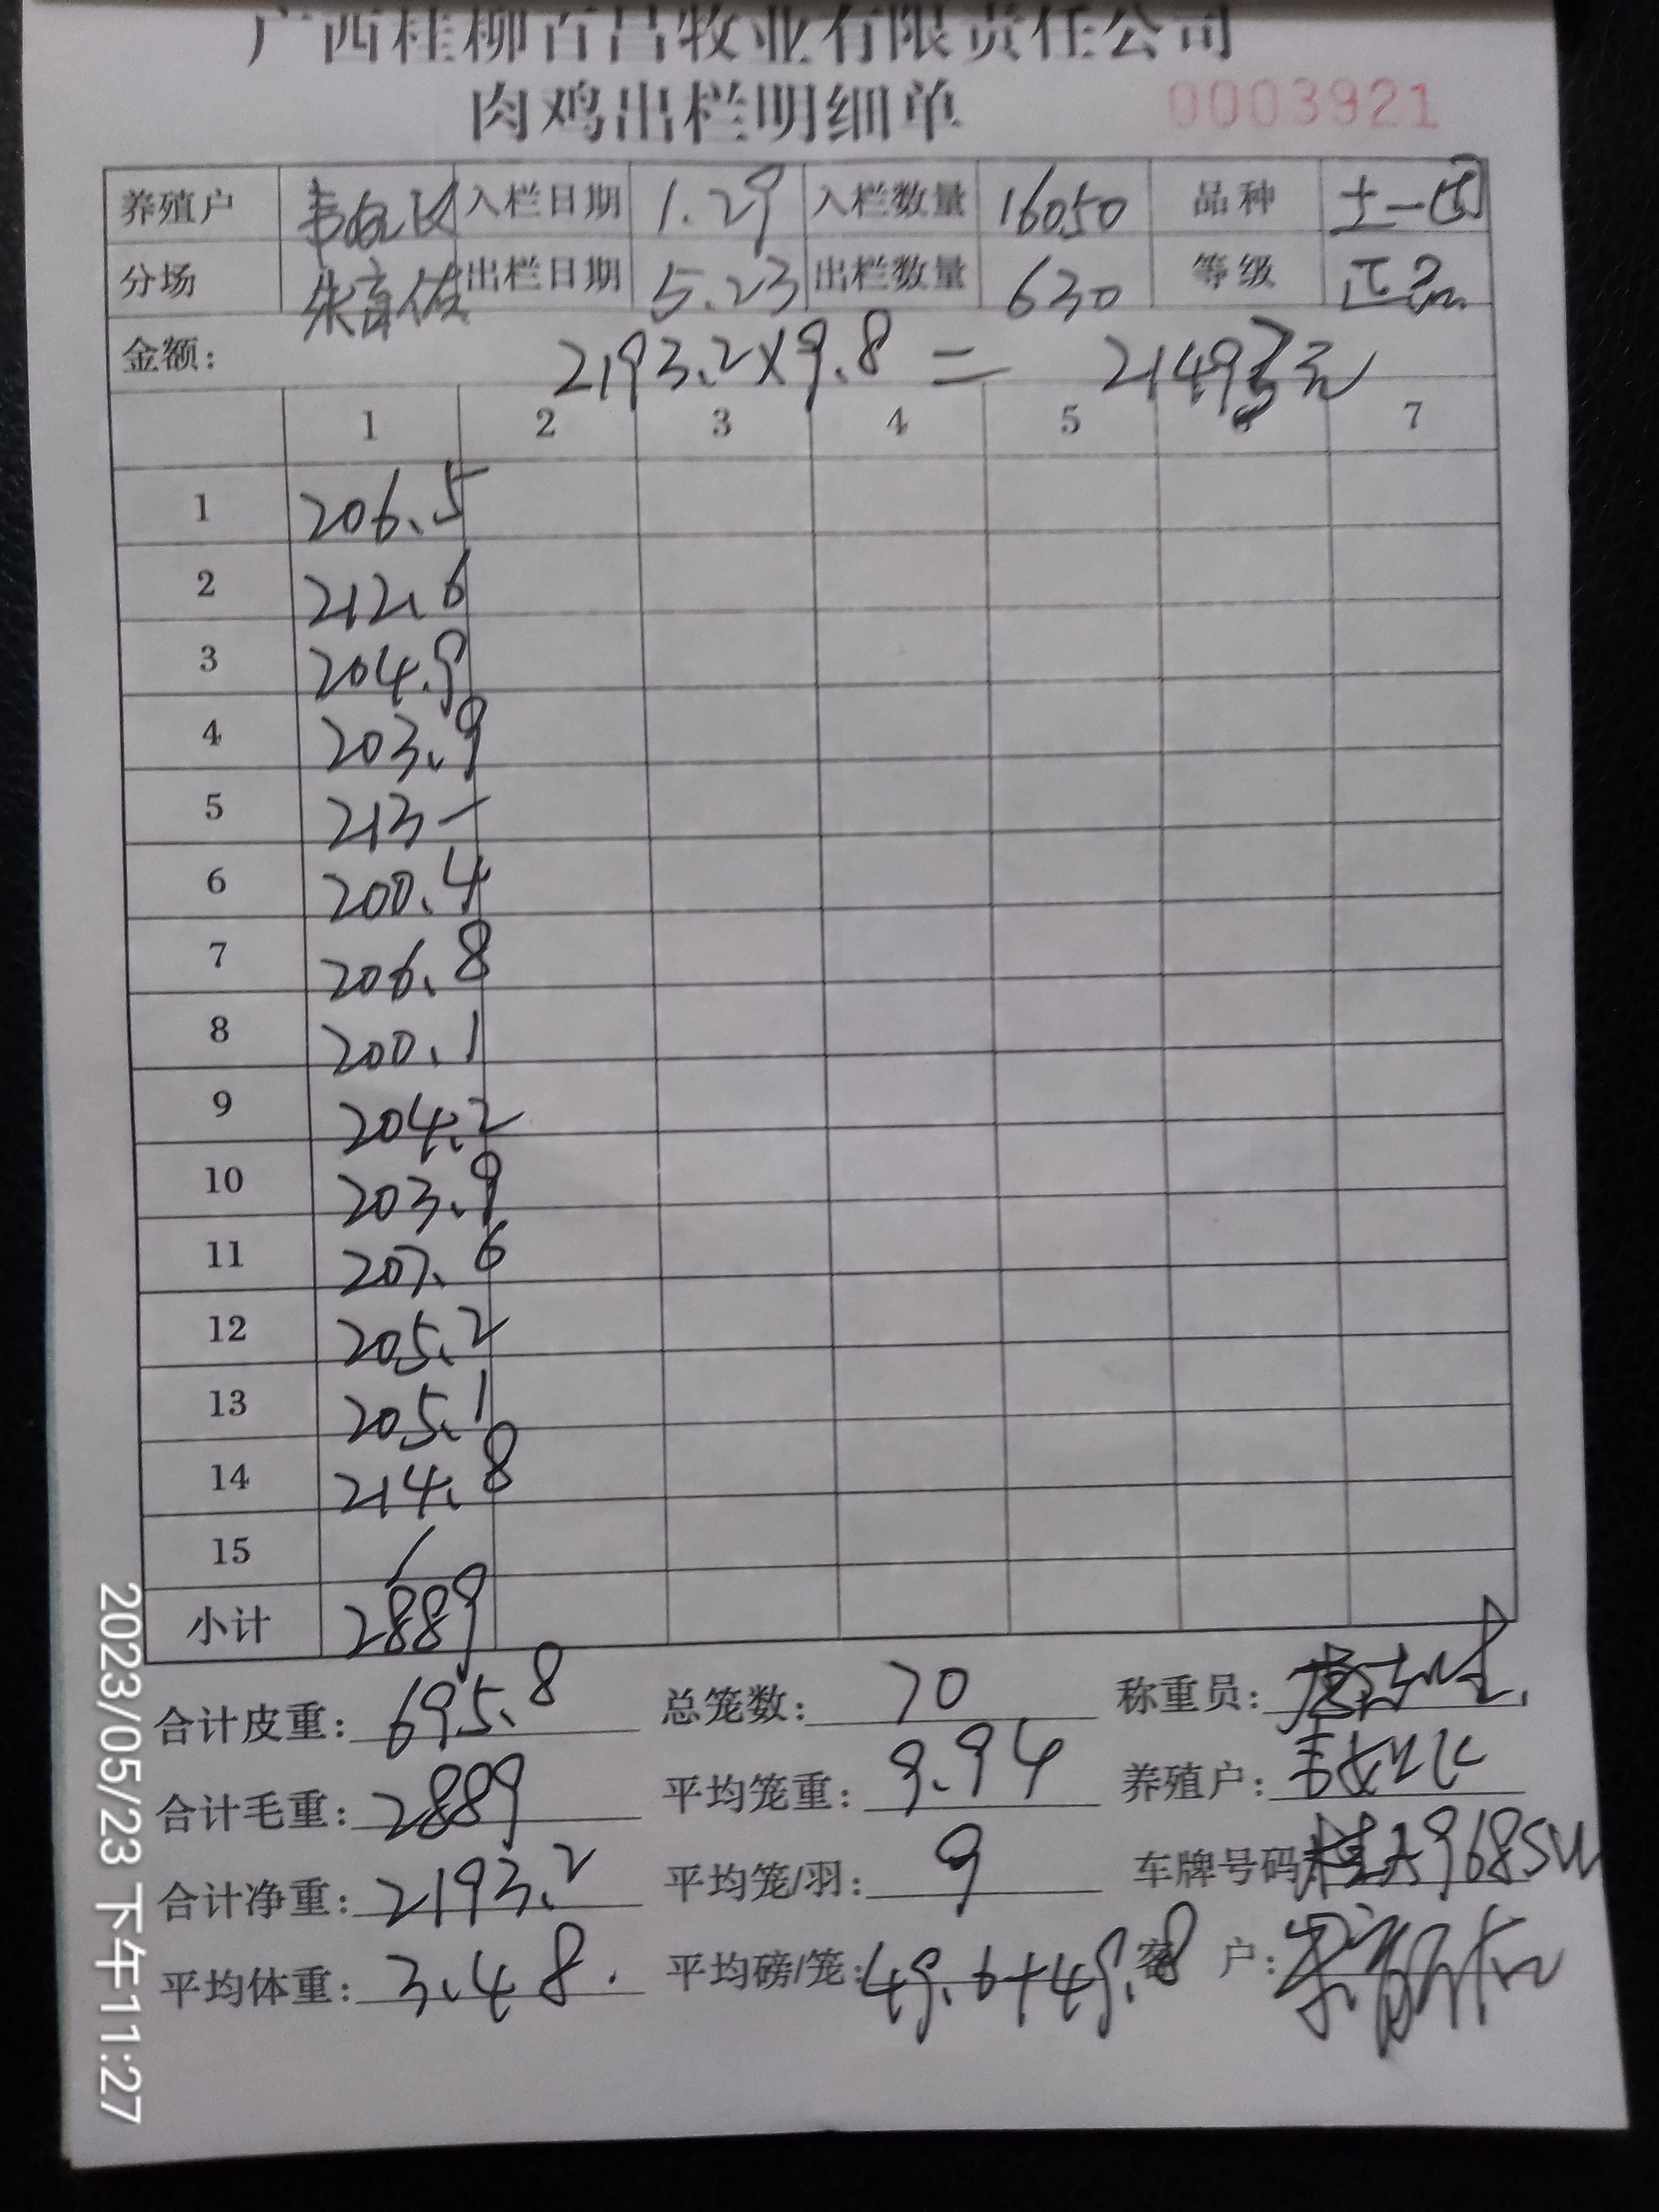 广西桂柳百昌牧业有限责任公司
肉鸡出栏明细单 0003921
养殖户 入栏日期 1.29 入栏数量 16050 品种 土一
分场 出栏日期 5.23 出栏数量 630 等级 正品
金额： 2193.2×9.8＝ 21493元
1 2 3 4 5 7
1 206.5
2 212.6
3 204.9
4 203.9
5 213-
6 200.4
7 206.8
8 200.1
9 204.2
10 203.9
11 207.6
12 205.2
13 205.1
14 214.8
15 /
小计 2889
合计皮重： 695.8 总笼数： 70 称重员：
合计毛重： 2889 平均笼重： 9.94 养殖户：
合计净重： 2193.2 平均笼/羽： 9 车牌号码：桂A968SW
平均体重： 3.48. 平均磅/笼：49.6+49.8 客 户：
2023/05/23 下午11:27